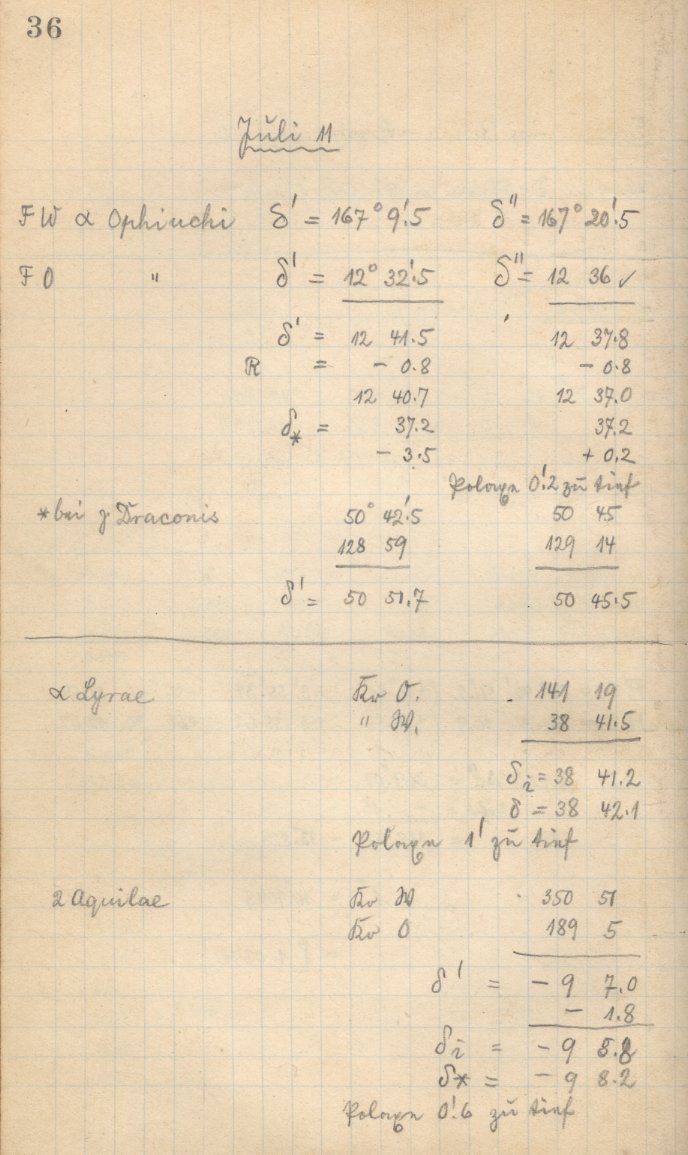 36
Juli 11
FW α Ophiuchi δ' = 167° 9'.5 δ" = 167° 20'.5
FO " δ' = 12° 32'.5 δ" = 12 36 ✓
δ' = 12 41.5 12 37.8
R = - 0.8 - 0.8
12 40.7 12 37.0
δ* = 37.2 37.2
- 3.5 + 0.2
Polaxe 0'.2 zu tief
* bei γ Draconis 50° 42'.5 50 45
128 59 129 14
δ' = 50 51.7 50 45.5
α Lyrae Kr O. 141 19
" W. 38 41.5
δi = 38 41.2
δ = 38 42.1
Polaxe 1' zu tief
2 Aquilae Kr W 350 51
Kr O 189 5
δ' = - 9 7.0
- 1.8
δi = - 9 8.8
δ* = - 9 8.2
Polaxe 0'.6 zu tief